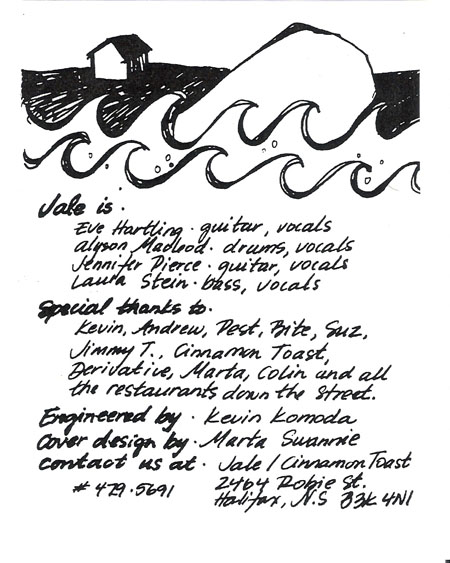 Jale is.
Eve Hartling · guitar, vocals
alyson MacLeod · drums, vocals
Jennifer Pierce · guitar, vocals
Laura Stein · bass, vocals
Special thanks to.
Kevin, Andrew, Pest, Bite, Suz,
Jimmy T., Cinnamon Toast,
Derivative, Marta, Colin and all
the restaurants down the street.
Engineered by · Kevin Komoda
Cover design by · Marta Swannie
contact us at · Jale / Cinnamon Toast
# 429·5691 2464 Robie St.
Halifax, N.S B3K 4N1